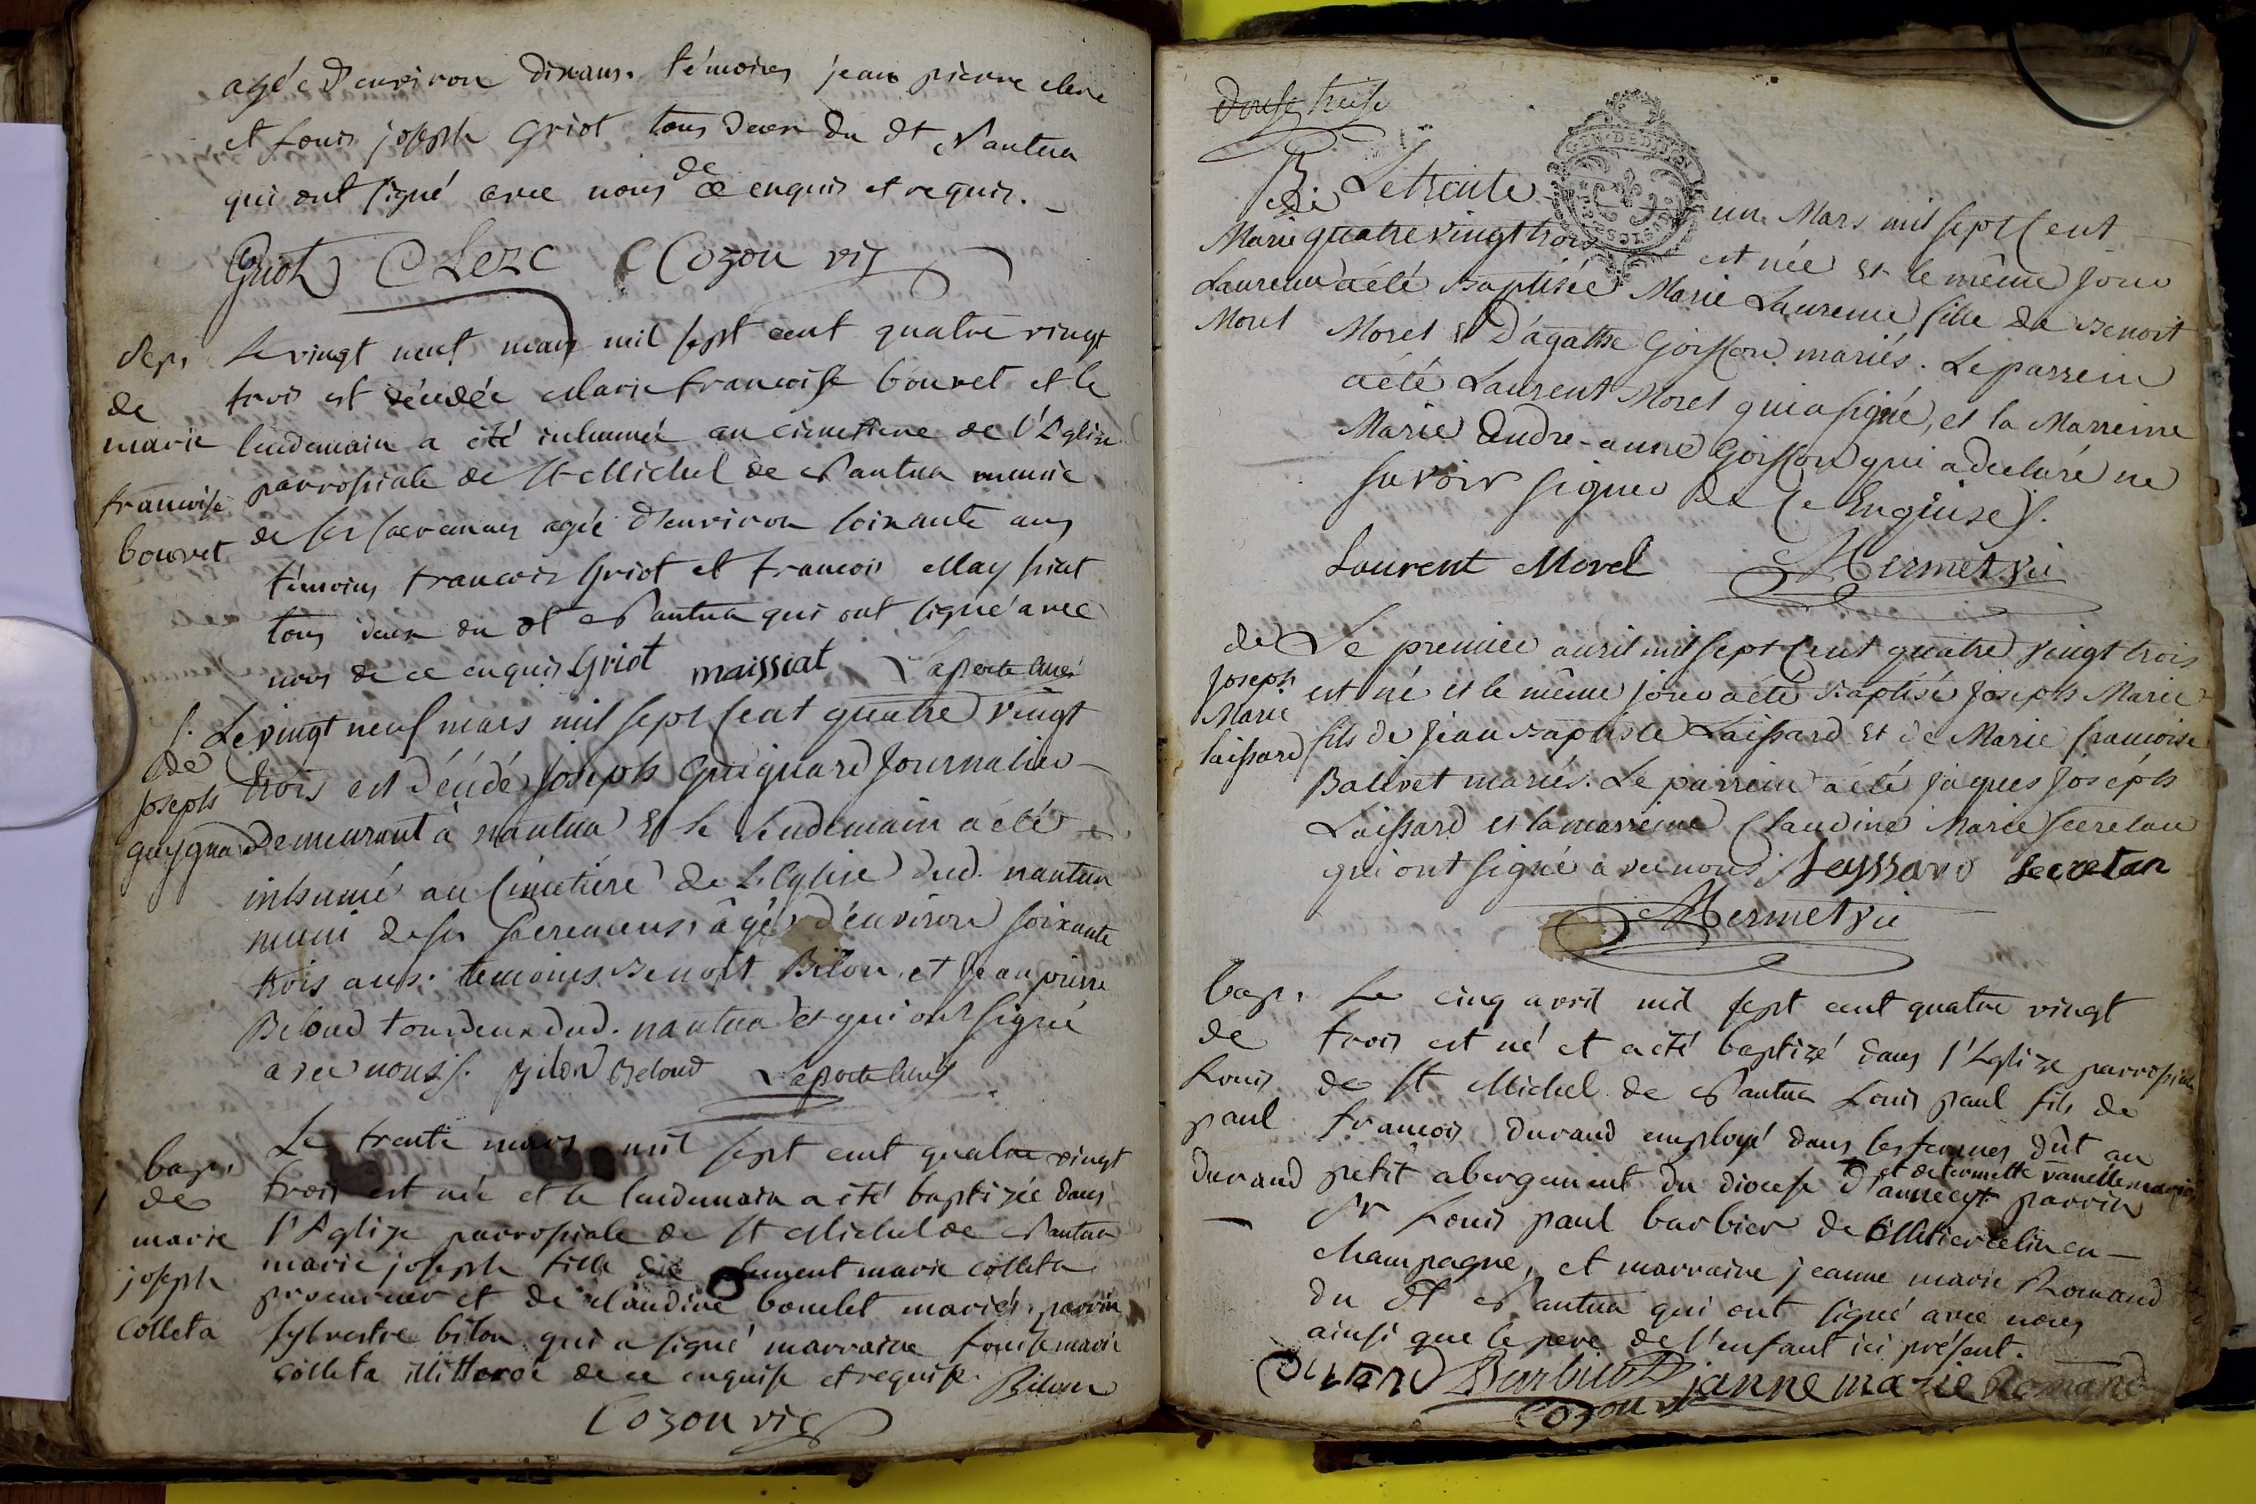 agée d'environ dix ans. témoins jean pierre clerc
et Louis joseph Griot tous deux du dt Nantua
qui ont signé avec nous de ce enquis et requis.
Griot CLerc Cozon vic
Sep.
de
marie
francoise
bouvet
Le vingt neuf mars mil sept cent quatre vingt
trois est décedée Marie francoise bouvet et le
lendemain a été inhumée au cimettiere de l'Eglise
parrossiale de St Michel de Nantua munie
de ses sacremens agée d'environ soixante ans
témoins francois Griot et francois Mayssiat
tous deux du dt Nantua qui ont signé avec
nous de ce enquis Griot maissiat Laporte curé
S.
de
Joseph
guygnard
Le vingt neuf mars mil sept Cent quatre vingt
trois est décédé Joseph Guignard Journalier
Demeurant à nantua et le lendemain a été
inhumé au Cimetière de L'Eglise dud. nantua
muni de ses Sacremens, âgé d'environ soixante
trois ans. temoins Benoit Bilon et Jean pierre
Beloud tous deux dud. nantua et qui ont signé
avec nous s. Bilon Beloud Laporte curé
bap.
de
marie
joseph
Colleta
Le trente mars mil sept cent quatre vingt
trois est née et le lendemain a été baptizée dans
l'Eglize parrossiale de St Michel de Nantua
marie joseph fille de clement marie colleta
procureur et de claudine bouclet mariés, parrin
sylvestre bilon qui a signé marraine Louise marie
colleta illitteree de ce enquise et requise. Bilon
Cozon vic
Douse treise
GEN. DE DIJON
B.
de
Marie
Laurence
Morel
Le trente un Mars mil sept Cent
quatre vingt trois est née et le même jour
a été Baptisée Marie Laurence fille de Benoit
Morel et d'agathe Goisson mariés. Le parrein
a été Laurent Morel qui a signé, et la Marreine
Marie Andre-anne Goisson qui a declaré ne
savoir signer De Ce Enquise S.
Laurent Morel Mermet vic
de
Joseph
Marie
laissard
Le premier avril mil sept Cent quatre vingt trois
est né et le même jour a été Baptisé Joseph Marie
fils de Jean Baptiste Laissard et de Marie francoise
Balivet mariés. Le parrein a été Jaques Joseph
Laissard et la marreine Claudine Marie Secretan
qui ont signé avec nous. Leyssard Secretan
Mermet vic
bap.
de
Louis
paul
durand
Le cinq avril mil sept cent quatre vingt
trois est né et a été baptizé dans l'Eglize parrossiale
de St Michel de Nantua Louis paul fils de
francois durand employé dans les fermes dût au
petit abergement du diocese d'annecy et de parrin
Sr Louis paul barbier de en
champagne, et marraine jeanne marie Romand
du dt Nantua qui ont signé avec nous
ainsi que le pere de l'enfant ici présent.
durand Barbier janne marie Romand
Cozon vic